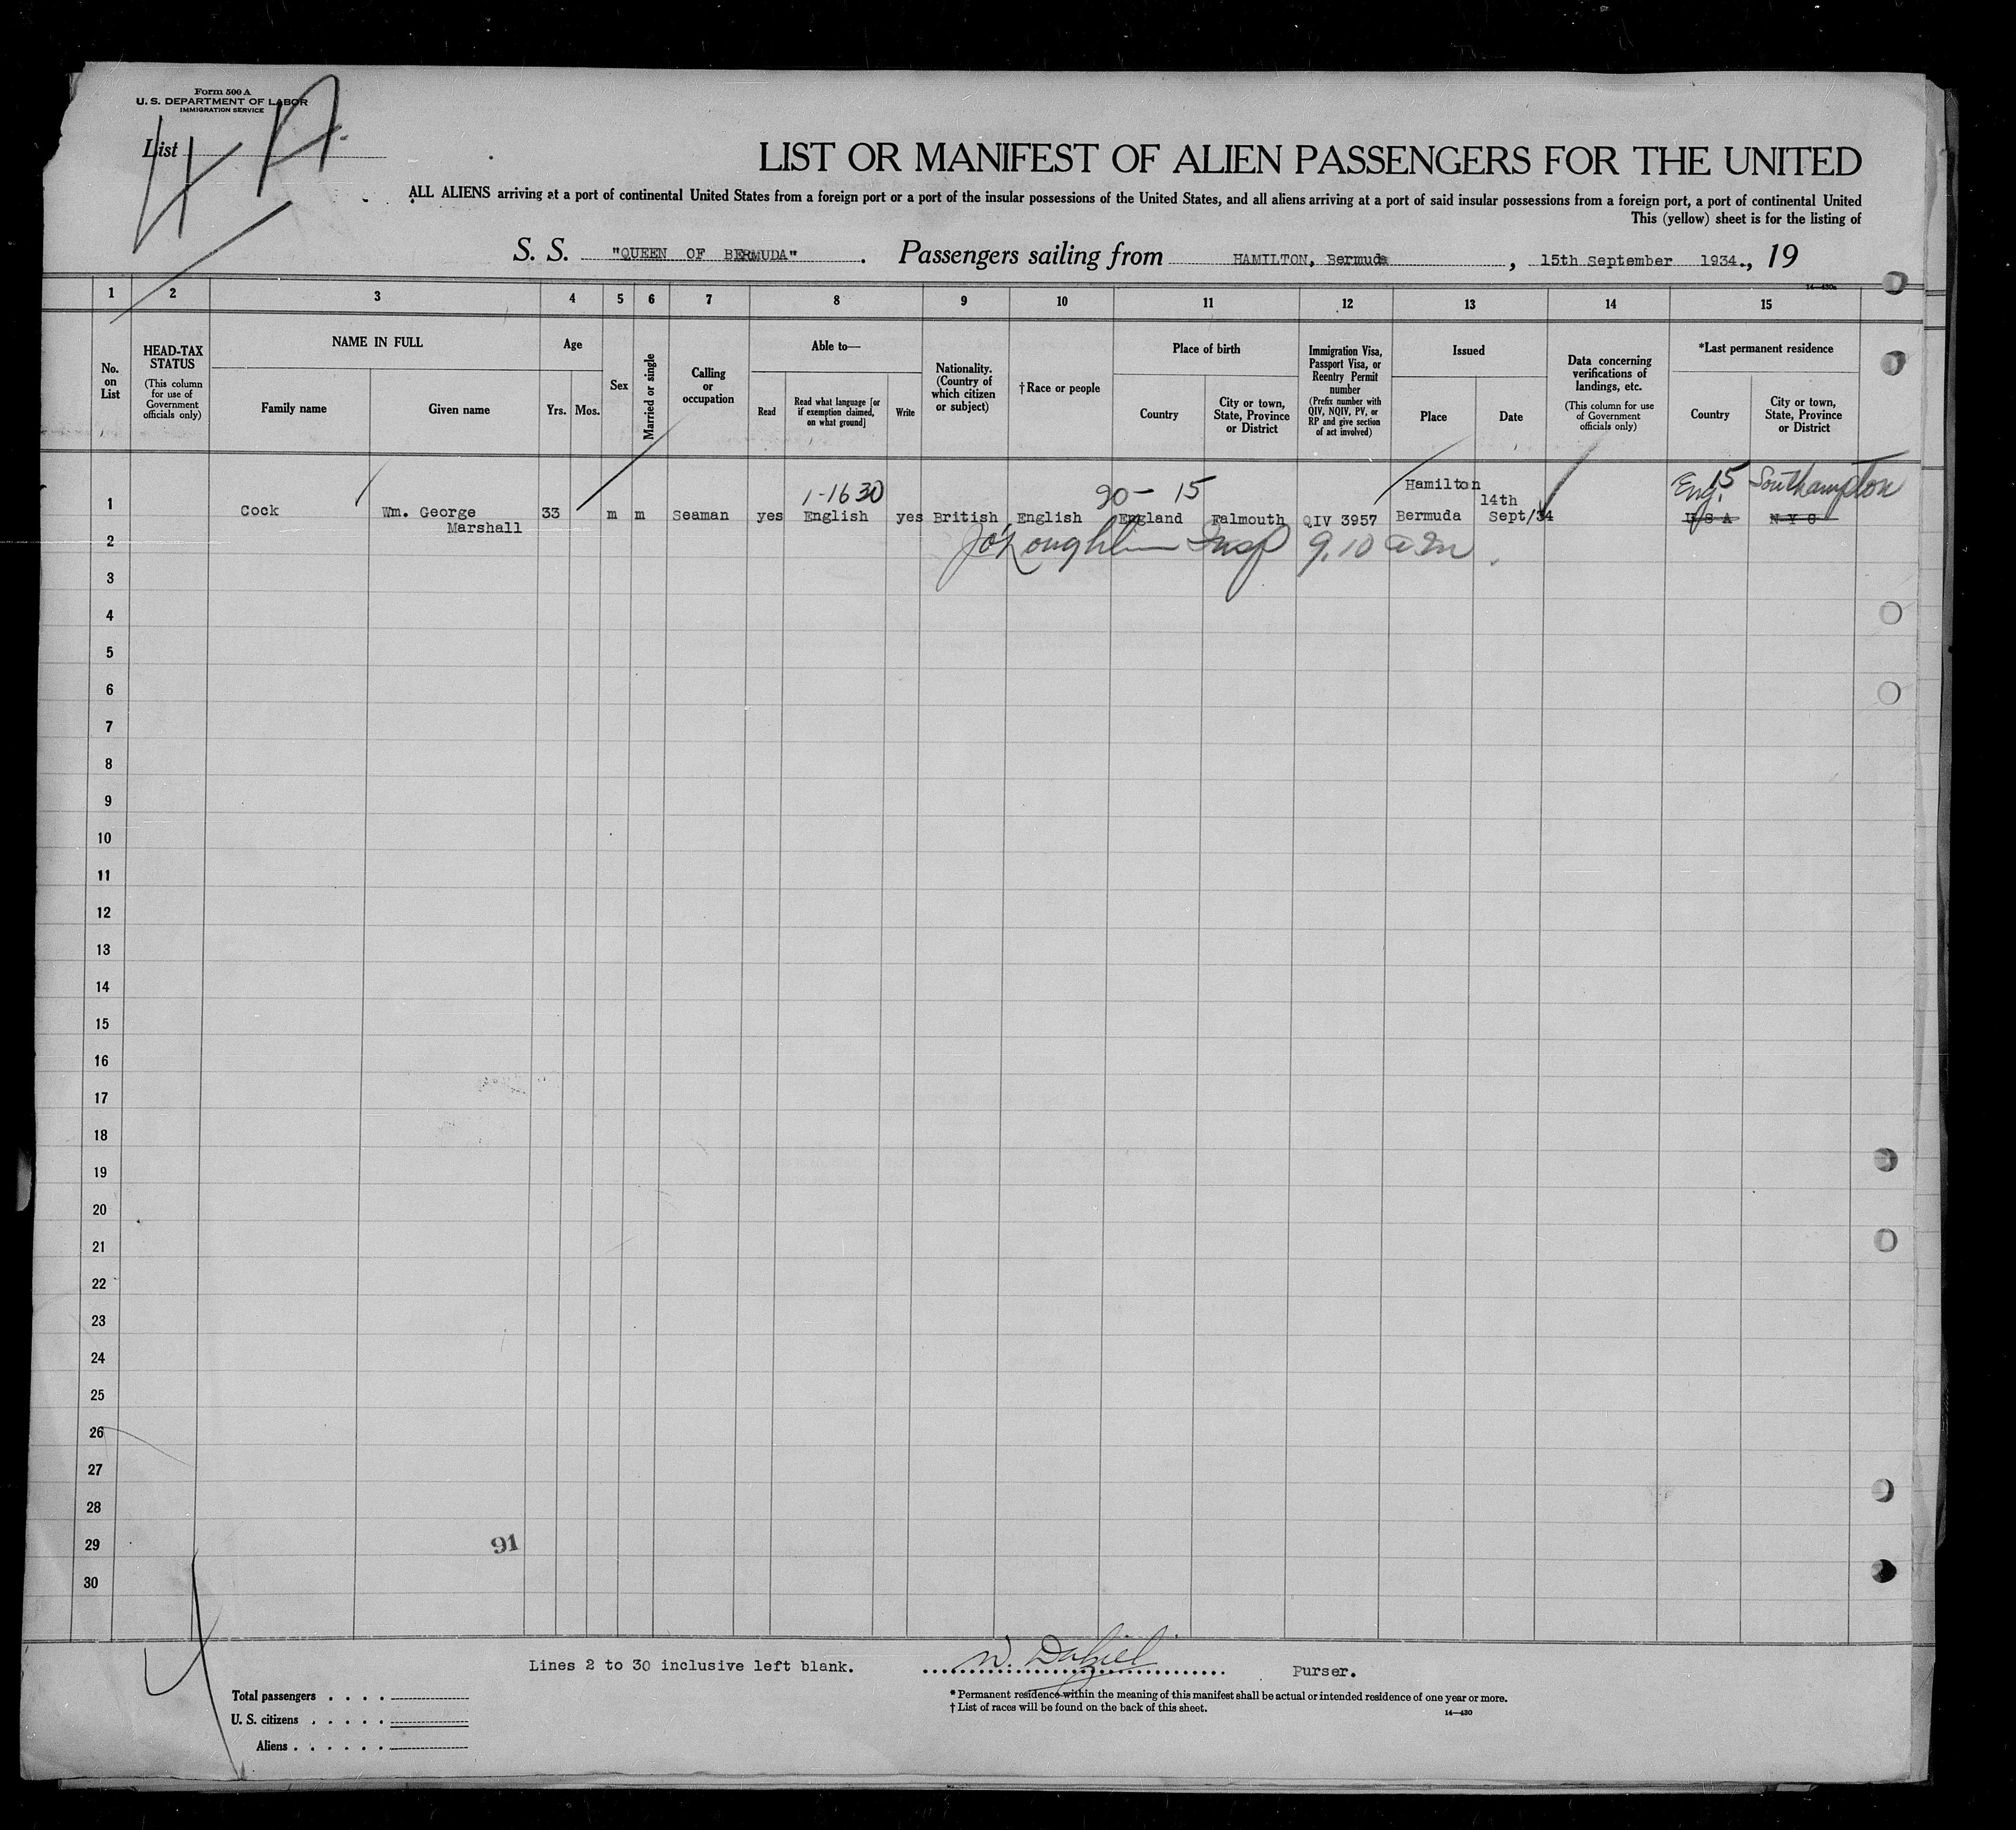 Form 500 A
U. S. DEPARTMENT OF LABOR
IMMIGRATION SERVICE
List 4 A
LIST OR MANIFEST OF ALIEN PASSENGERS FOR THE UNITED
ALL ALIENS arriving at a port of continental United States from a foreign port or a port of the insular possessions of the United States, and all aliens arriving at a port of said insular possessions from a foreign port, a port of continental United
This (yellow) sheet is for the listing of
S. S. "QUEEN OF BERMUDA". Passengers sailing from HAMILTON, Bermuda, 15th September 1934., 19
14—430a
1 2 3 4 5 6 7 8 9 10 11 12 13 14 15
No. on List
HEAD-TAX STATUS
(This column for use of Government officials only)
NAME IN FULL
Family name
Given name
Age
Yrs. Mos.
Sex
Married or single
Calling or occupation
Able to—
Read
Read what language [or if exemption claimed, on what ground]
Write
Nationality. (Country of which citizen or subject)
†Race or people
Place of birth
Country
City or town, State, Province or District
Immigration Visa, Passport Visa, or Reentry Permit number
(Prefix number with QIV, NQIV, PV, or RP and give section of act involved)
Issued
Place
Date
Data concerning verifications of landings, etc.
(This column for use of Government officials only)
*Last permanent residence
Country
City or town, State, Province or District
1-1630 90- 15 Hamilton 14th Eng. 15 Southampton
1 Cock Wm. George 33 m m Seaman yes English yes British English England Falmouth QIV 3957 Bermuda Sept/34 U S A N Y C
Marshall
2 J O'Loughlin Insp 9.10 am
3
4
5
6
7
8
9
10
11
12
13
14
15
16
17
18
19
20
21
22
23
24
25
26
27
28
29 91
30
Lines 2 to 30 inclusive left blank. W. Dalziel Purser.
Total passengers
U. S. citizens
Aliens
* Permanent residence within the meaning of this manifest shall be actual or intended residence of one year or more.
† List of races will be found on the back of this sheet.
14—430